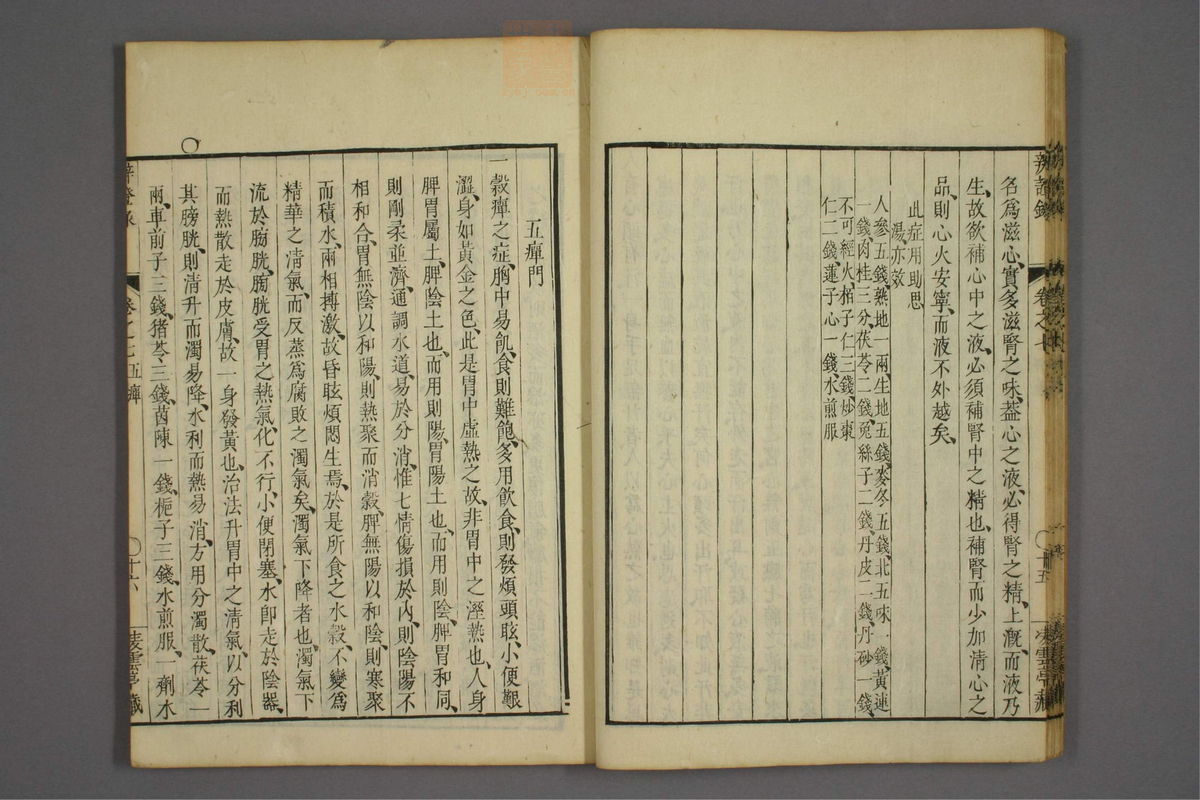 辨證錄 卷之七 十五 凌雲亭藏
名爲滋心、實多滋腎之味、葢心之液、必得腎之精、上漑而液乃
生、故欲補心中之液、必須補腎中之精也、補腎而少加清心之
品、則心火安寧、而液不外越矣、
此症用助思
湯亦效
人參五錢、熟地一兩生地五錢、麥冬五錢、北五味一錢、黃連
一錢肉桂三分、茯苓二錢、兔絲子二錢、丹皮一錢、丹砂一錢、
不可經火、柏子仁三錢、炒棗
仁二錢、蓮子心一錢、水煎服
五癉門
一穀癉之症、胸中易飢、食則難飽、多用飲食、則發煩頭眩、小便艱
澀、身如黃金之色、此是胃中虛熱之故、非胃中之溼熱也、人身
脾胃屬土、脾陰土也、而用則陽、胃陽土也、而用則陰、脾胃和同、
則剛柔並濟、通調水道、易於分消、惟七情傷損於內、則陰陽不
相和合、胃無陰以和陽、則熱聚而消穀、脾無陽以和陰、則寒聚
而積水、兩相搏激、故昏眩煩悶生焉、於是所食之水穀、不變爲
精華之清氣、而反蒸爲腐敗之濁氣矣、濁氣下降者也、濁氣下
流於膀胱、膀胱受胃之熱、氣化不行、小便閉塞、水卽走於陰器、
而熱散走於皮膚、故一身發黃也、治法升胃中之清氣、以分利
其膀胱、則清升而濁易降、水利而熱易消、方用分濁散、茯苓一
兩、車前子三錢、猪苓三錢、茵陳一錢、梔子三錢、水煎服、一劑水
辨證錄 卷之七五癉 十六 凌雲亭藏